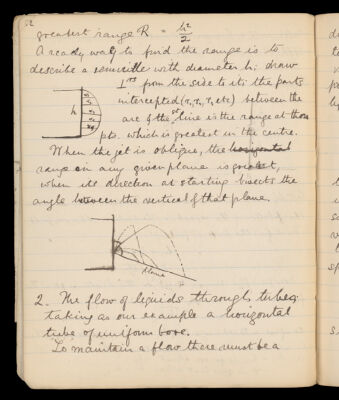 greatest range R = h²/2
A ready way to find the range is to
describe a semicircle with diameter h; draw
⊥rs from the side to it; the parts
intercepted (r₁, r₂, r₃ etc) between the
h
arc & the st line is the range at those
pts. which is greatest in the centre.
When the jet is oblique, the horizontal
range on any given plane is greatest,
when its direction at starting bisects the
angle between the vertical & that plane.
plane
2. The flow of liquids through tubes;
taking as our example a horizontal
tube of uniform bore.
To maintain a flow there must be a